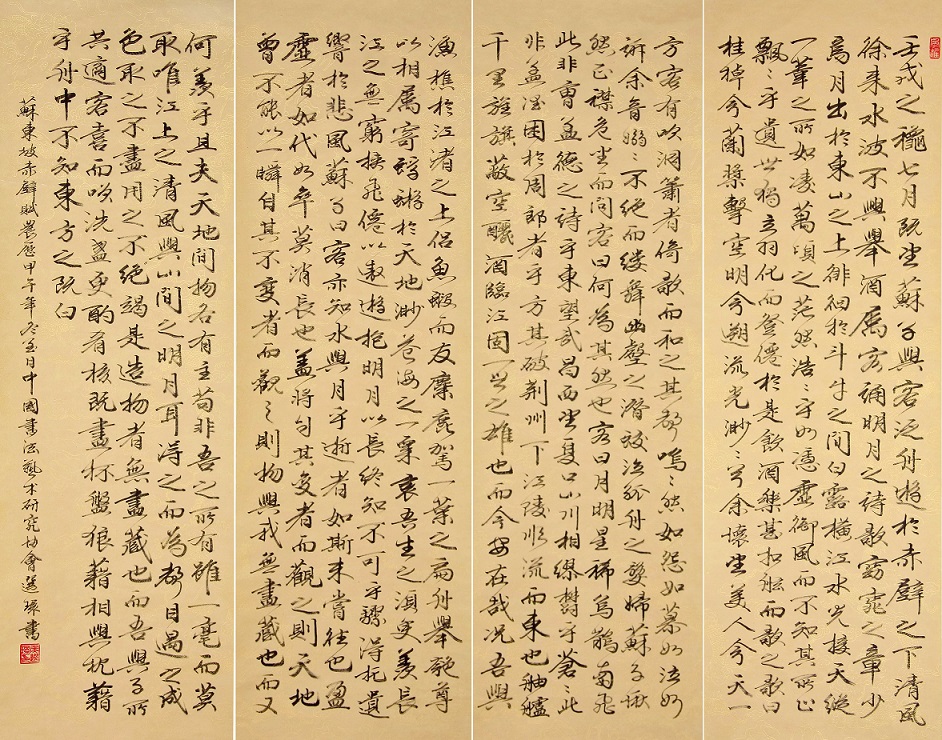 壬戌之龝七月既望蘇子與客泛舟遊於赤壁之下清風
徐來水波不興舉酒属客誦明月之詩歌窈窕之章少
焉月出於東山之上徘徊於斗牛之間白露橫江水光接天縱
一葦之所如凌萬頃之茫然浩〻乎如憑虛御風而不知其所止
飄〻乎遺世獨立羽化而登僊於是飲酒樂甚扣舷而歌之歌曰
桂棹兮蘭槳擊空明兮溯流光渺〻兮余懷望美人兮天一
方客有吹洞簫者倚歌而和之其聲嗚〻然如怨如慕如泣如
訴余音嫋〻不絕而缕舞幽壑之潛蛟泣孤舟之嫠婦蘇子愀
然正襟危坐而問客曰何為其然也客曰月明星稀烏鵲南飛
此非曹孟德之詩乎東望武昌西望夏口山川相繆鬱乎蒼〻此
非孟德困於周郎者乎方其破荊州下江陵順流而東也舳艫
千里旌旗蔽空釃酒臨江固一世之雄也而今安在哉況吾與
漁樵於江渚之上侶魚蝦而友麋鹿駕一葉之扁舟舉匏尊
以相属寄蜉蝣於天地渺蒼海之一粟哀吾生之須臾羨長
江之無窮挾飛僊以遨遊抱明月以長終知不可乎驟得托遺
響於悲風蘇子曰客亦知水與月乎逝者如斯未嘗往也盈
虛者如代如卒莫消長也盖將自其变者而觀之則天地
曾不能以一瞬自其不變者而觀之則物與我無盡藏也而又
何羨乎且夫天地間物各有主苟非吾之所有雖一毫而莫
取唯江上之清風與山間之明月耳得之而為聲目遇之成
色取之不盡用之不絕竭是造物者無盡藏也而吾與子所
共適客喜而笑洗盞更酌肴核既盡杯盤狼藉相與枕藉
乎舟中不知東方之既白
蘇東坡赤壁賦農歷甲午年冬至月中國書法藝术研究協會書